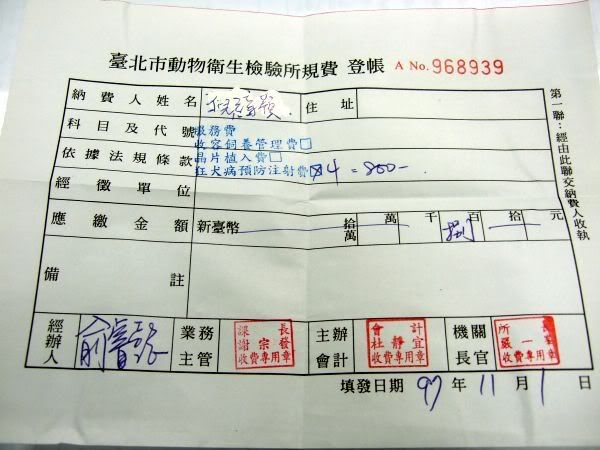 臺北市動物衛生檢驗所規費 登帳 A No. 968939
納費人姓名 住址
科目及代號 服務費
收容飼養管理費□
依據法規條款 晶片植入費□
狂犬病預防注射費□ ×4 = 800-
經徵單位
應繳金額 新臺幣 拾萬 萬 千 捌 百 拾 元
備註
經辦人 業務主管 課長 謝宗發 收費專用章 主辦會計 會計 杜靜宜 收費專用章 機關長官 所長 嚴一峯 收費專用章
填發日期 97 年 11 月 1 日
第一聯:經由此聯交納費人收執